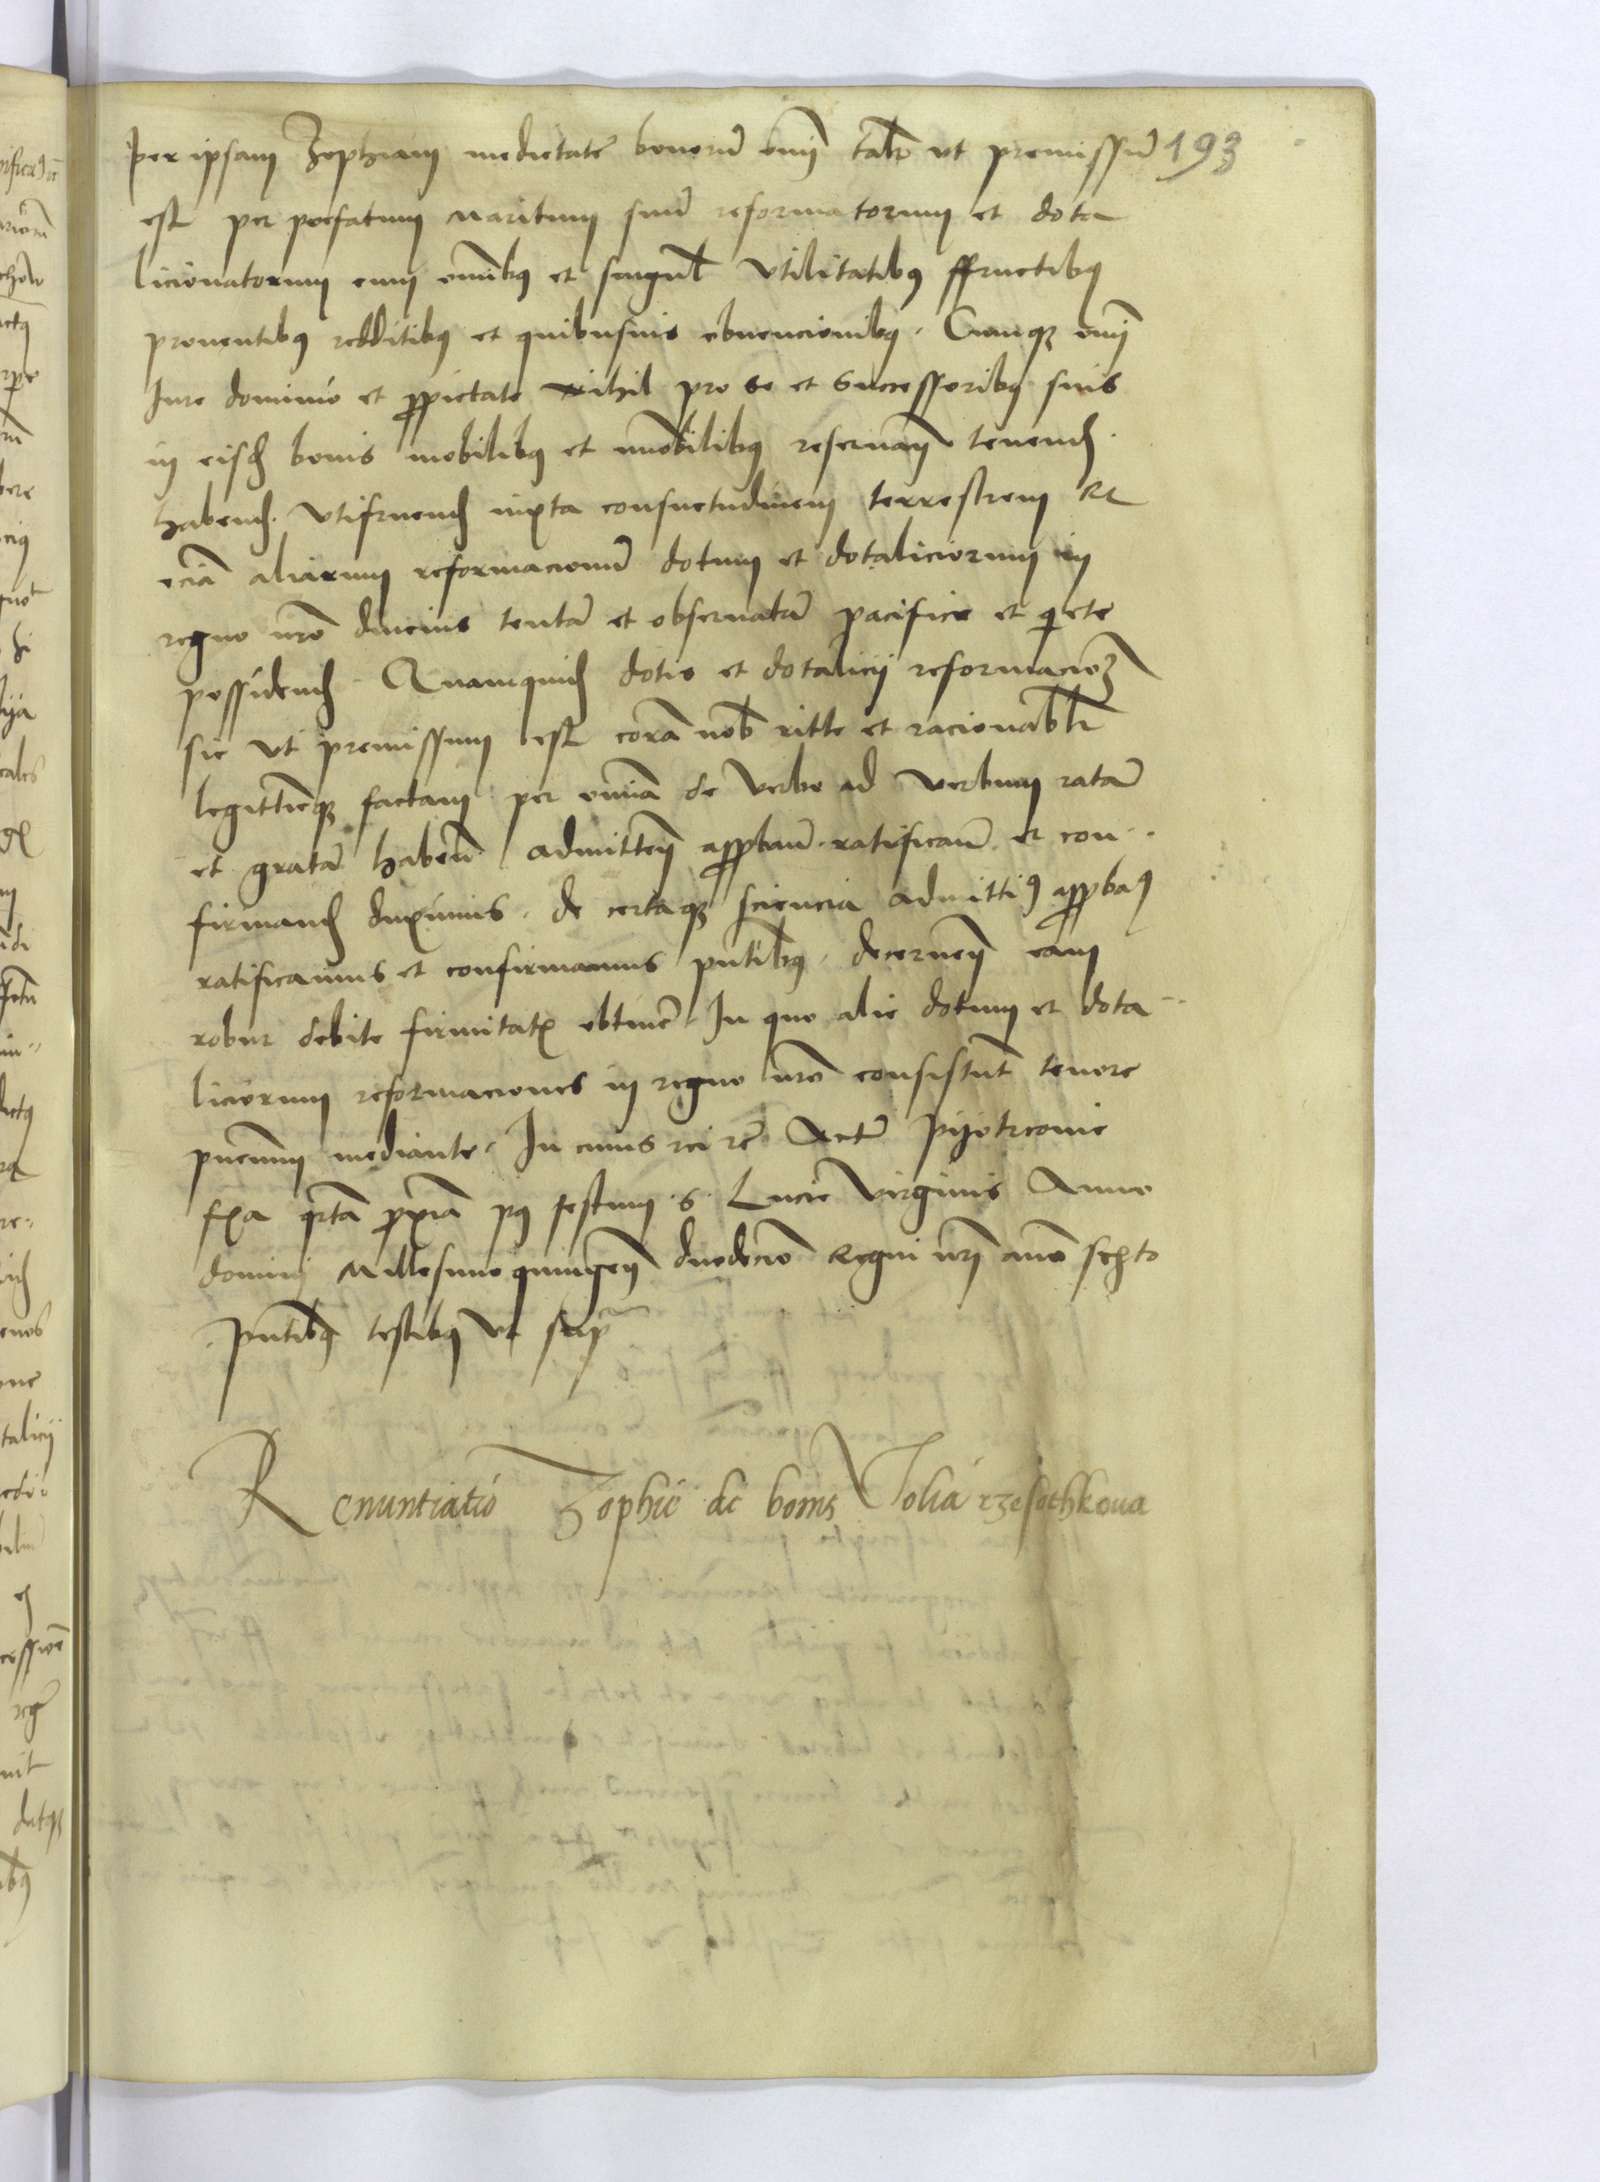 per ipsam Zophiam medietatē bonorū om̄i talr̄ ut premissū 193
est per prefatum Maritum suū reformatorum et dota
licionatorum cum om̄ibus et singul̄ Utilitatibus ffructibus
proventibus redditibus et quibusvis obvencionibus. Cumque om̄i
Jure dominio et propietate Nihil pro se et Successoribus suis
in eisd bonis mobilibus et im̄obilibus reservan̄ tenend.
habend. Utifruend iuxta consuetudinem terrestrem Et
eciā aliarum reformacionū dotum et dotaliciorum in
regno nr̄o diucius tentā et observatā pacifice et quiete
possidend. Quamquid dotis et dotalicii reformacionē
sic ut premissum est corā nob̄ ritte et racionabl̄r
legittimeque factam per om̄ia de verbo ad verbum ratā
et gratā haben̄. admitten̄ approban̄. ratifican̄. et con-
firmand duximus. de certaque sciencia admittimus approbamus
ratificamus et confirmamus pn̄tibus. decernen̄ eam
robur debite firmitatis obtinerē In quo alie dotum et dota-
liciorum reformaciones in regno nr̄o consistunt tenore
pn̄cium mediante. In cuius rei rē Actū Pijotrcovie
fr̄ia qrtā proxiā post festum S. Lucie Virginis Anno
domini Millesimo quingen̄ duodecīo Regni nr̄i an̄o sexto
pn̄tibus testibus ut sup̄
Renuntiatio Zophie de bonis Volia rzesothkova